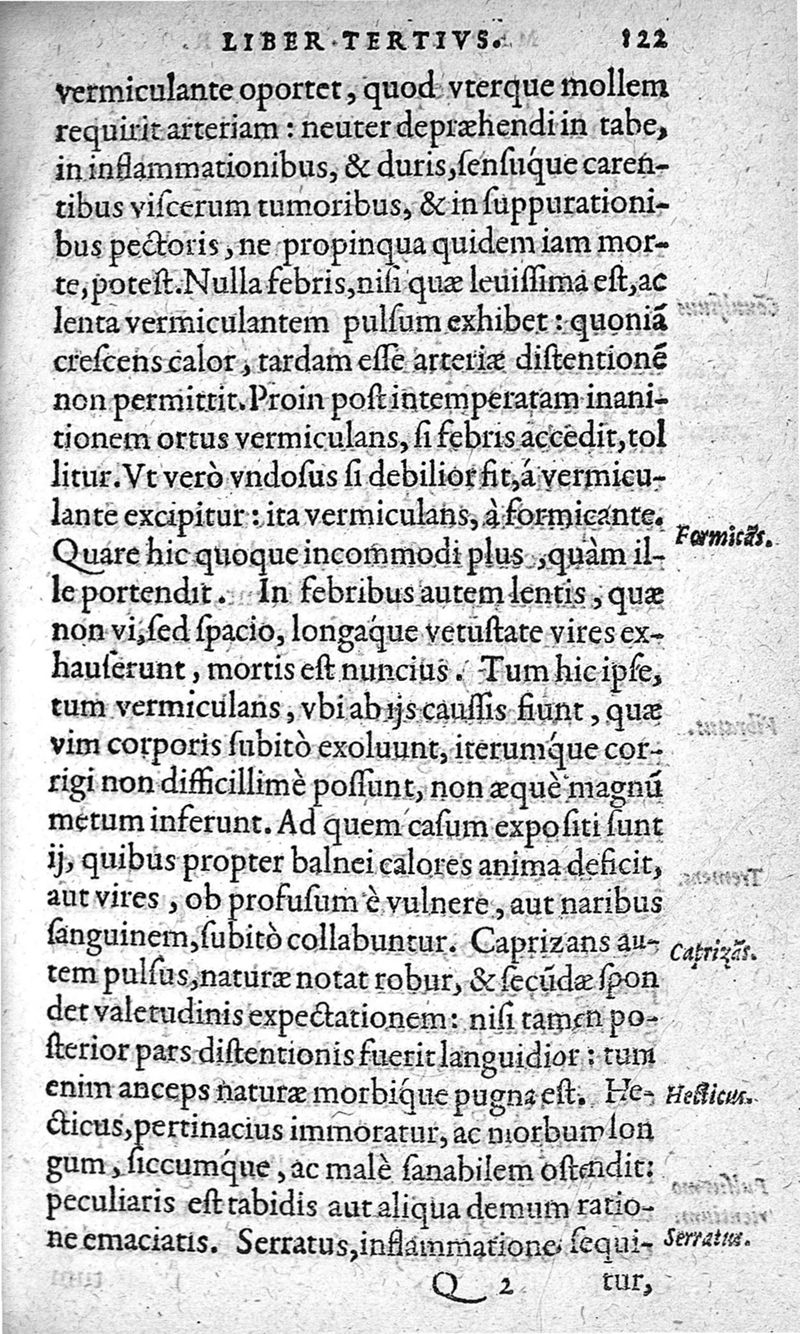 LIBER TERTIVS. 122
vermiculante oportet, quod vterque mollem
requirit arteriam : neuter depræhendi in tabe,
in inflammationibus, & duris, ſenſuq́ue caren-
tibus viſcerum tumoribus, & in ſuppurationi-
bus pectoris, ne propinqua quidem iam mor-
te, poteſt. Nulla febris, niſi quæ leuiſſima eſt, ac
lenta vermiculantem pulſum exhibet : quoniã
creſcens calor, tardam eſſe arteriæ diſtentionẽ
non permittit. Proin poſt intemperatam inani-
tionem ortus vermiculans, ſi febris accedit, tol
litur. Vt verò vndoſus ſi debilior fit, á vermicu-
lante excipitur : ita vermiculans, à formicante.
Formicãs.
Quare hic quoque incommodi plus, quàm il-
le portendit. In febribus autem lentis, quæ
non vi, ſed ſpacio, longaq́ue vetuſtate vires ex-
hauſerunt, mortis eſt nuncius. Tum hic ipſe,
tum vermiculans, vbi ab ijs cauſſis fiunt, quæ
vim corporis ſubitò exoluunt, iterumq́ue cor-
rigi non difficillimè poſſunt, non æquè magnũ
metum inferunt. Ad quem caſum expoſiti ſunt
ij, quibus propter balnei calores anima deficit,
aut vires, ob profuſum è vulnere, aut naribus
ſanguinem, ſubitò collabuntur. Caprizans au-
Caprizãs.
tem pulſus, naturæ notat robur, & ſecũdæ ſpon
det valetudinis expectationem : niſi tamen po-
ſterior pars diſtentionis fuerit languidior : tum
enim anceps naturæ morbiq́ue pugna eſt. He-
Hecticus.
cticus, pertinacius immoratur, ac morbum lon
gum, ſiccumq́ue, ac malè ſanabilem oſtendit:
peculiaris eſt tabidis aut aliqua demum ratio-
ne emaciatis. Serratus, inflammatione ſequi-
Serratus.
Q 2 tur,